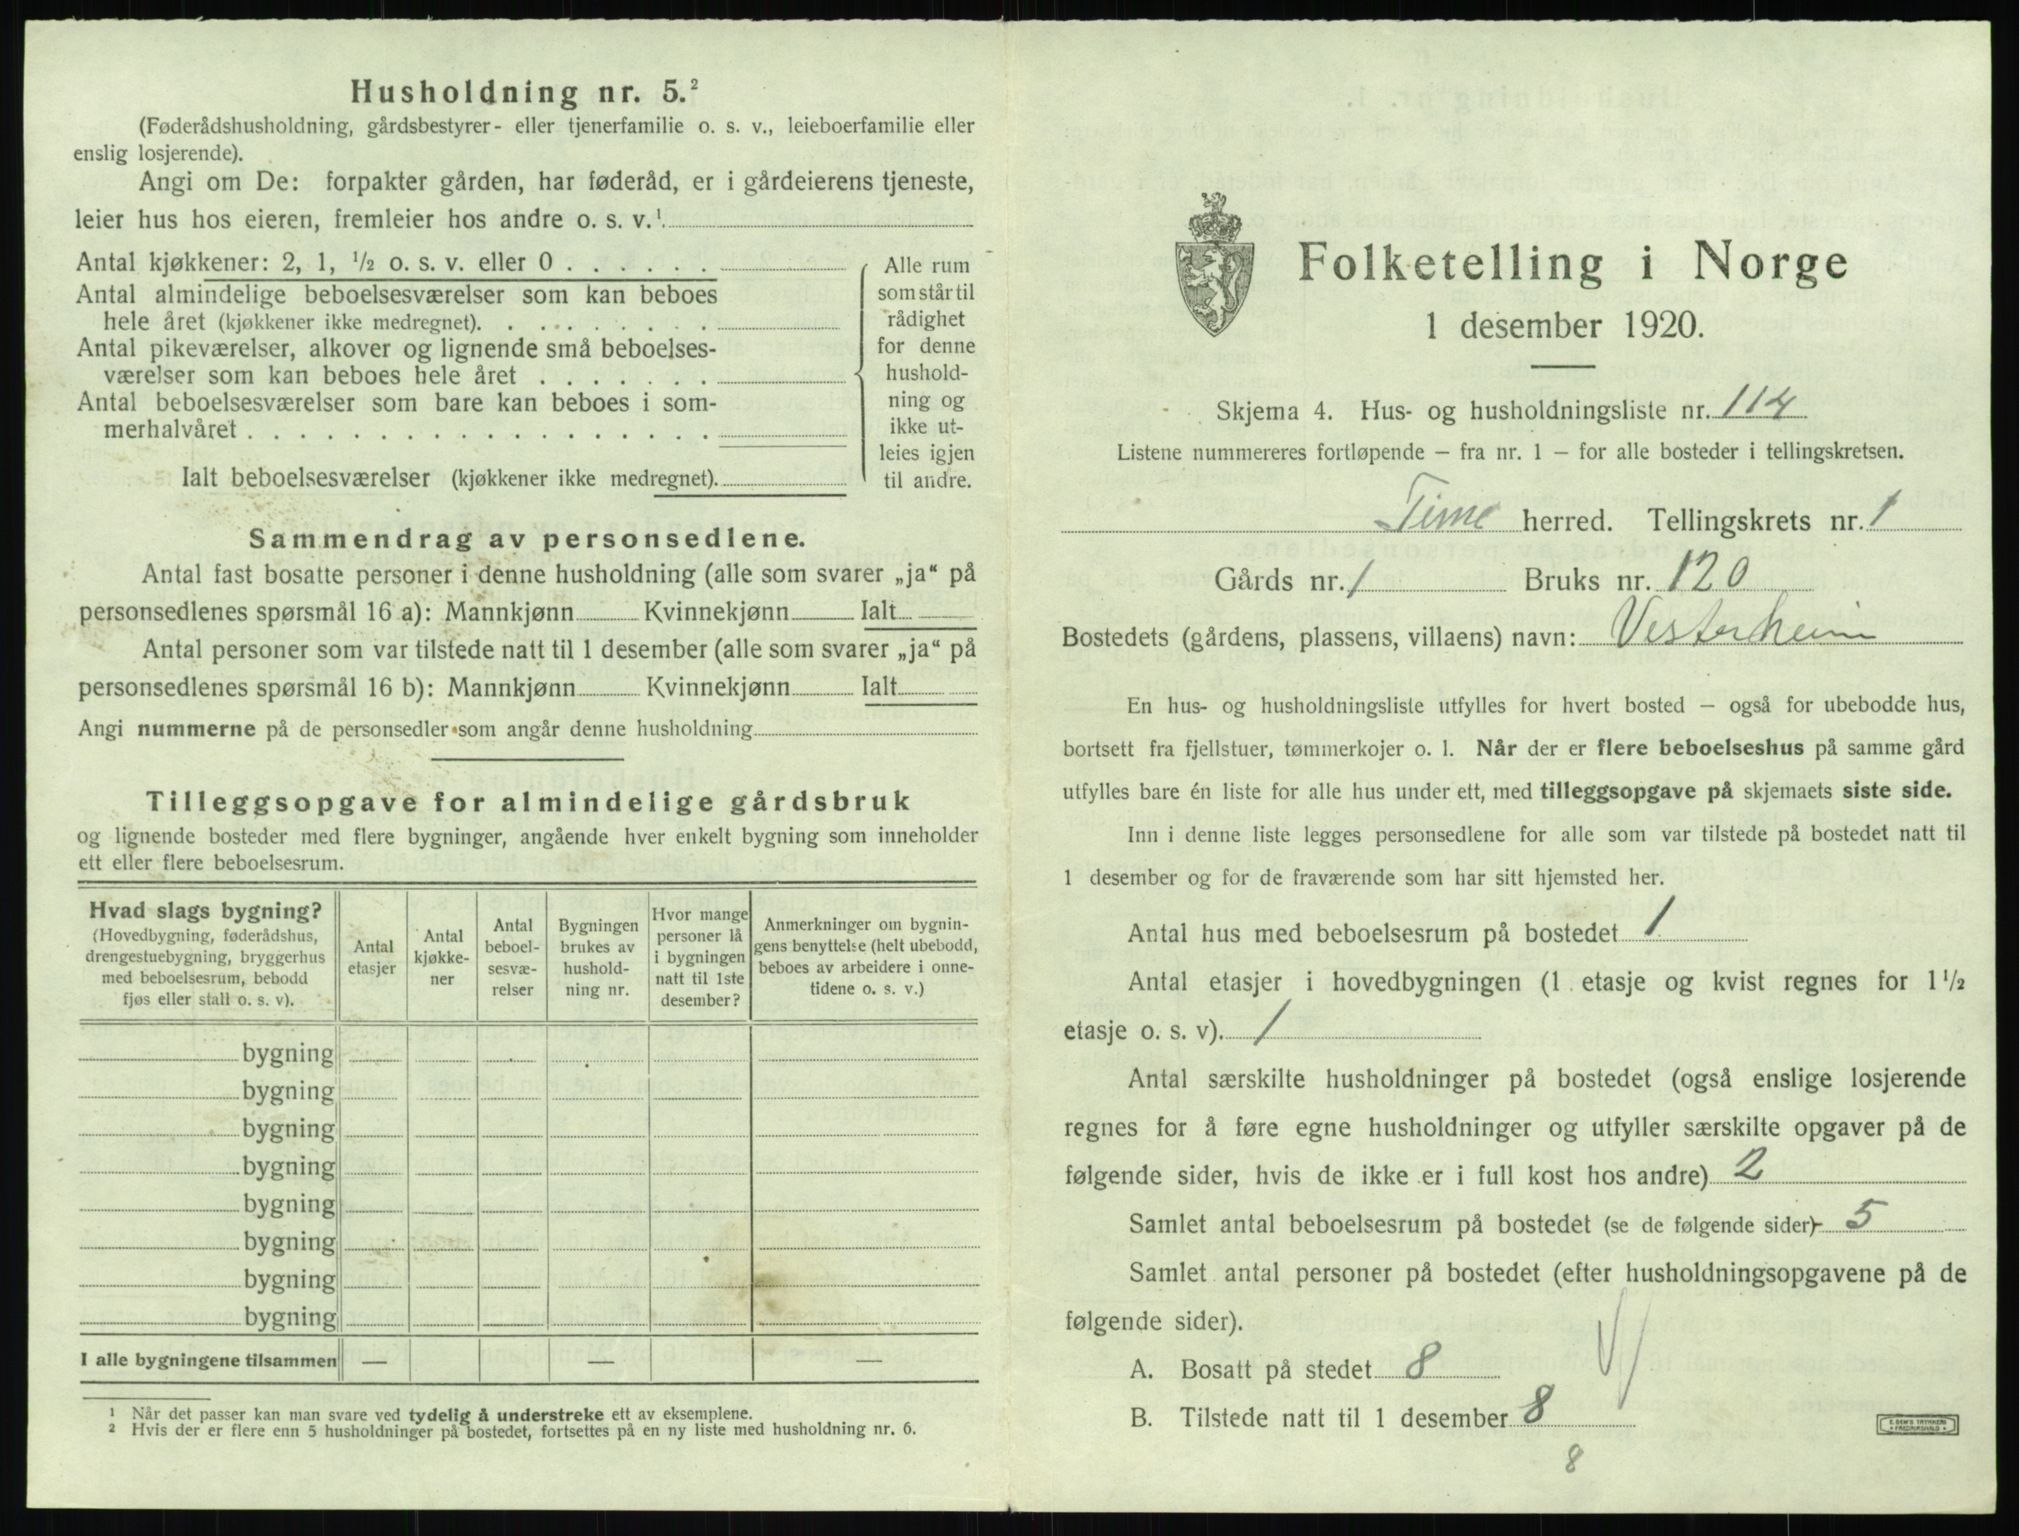 Husholdning nr. 5.²
(Føderådshusholdning, gårdsbestyrer- eller tjenerfamilie o. s. v., leieboerfamilie eller
enslig losjerende).
Angi om De: forpakter gården, har føderåd, er i gårdeierens tjeneste,
leier hus hos eieren, fremleier hos andre o. s. v.¹
Antal kjøkkener: 2, 1, ½ o. s. v. eller 0 . . . . . .
Antal almindelige beboelsesværelser som kan beboes
hele året (kjøkkener ikke medregnet). . . . . . . . .
Antal pikeværelser, alkover og lignende små beboelses-
værelser som kan beboes hele året . . . . . . .
Antal beboelsesværelser som bare kan beboes i som-
merhalvåret . . . . . . . . . . . . . . . . . .
Ialt beboelsesværelser (kjøkkener ikke medregnet).
Alle rum
som står til
rådighet
for denne
hushold-
ning og
ikke ut-
leies igjen
til andre.
Sammendrag av personsedlene.
Antal fast bosatte personer i denne husholdning (alle som svarer „ja“ på
personsedlenes spørsmål 16 a): Mannkjønn Kvinnekjønn Ialt
Antal personer som var tilstede natt til 1 desember (alle som svarer „ja“ på
personsedlenes spørsmål 16 b): Mannkjønn Kvinnekjønn Ialt
Angi nummerne på de personsedler som angår denne husholdning
Tilleggsopgave for almindelige gårdsbruk
og lignende bosteder med flere bygninger, angående hver enkelt bygning som inneholder
ett eller flere beboelsesrum.
Hvad slags bygning?
(Hovedbygning, føderådshus,
drengestuebygning, bryggerhus
med beboelsesrum, bebodd
fjøs eller stall o. s. v).
Antal
etasjer
Antal
kjøkke-
ner
Antal
beboel-
sesvæ-
relser
Bygningen
brukes av
hushold-
ning nr.
Hvor mange
personer lå
i bygningen
natt til 1ste
desember?
Anmerkninger om bygnin-
gens benyttelse (helt ubebodd,
beboes av arbeidere i onne-
tidene o. s. v.)
bygning
bygning
bygning
bygning
bygning
bygning
bygning
bygning
I alle bygningene tilsammen — — —
¹ Når det passer kan man svare ved tydelig å understreke ett av eksemplene.
² Hvis der er flere enn 5 husholdninger på bostedet, fortsettes på en ny liste med husholdning nr. 6.
Folketelling i Norge
1 desember 1920.
Skjema 4. Hus- og husholdningsliste nr. 114
Listene nummereres fortløpende — fra nr. 1 — for alle bosteder i tellingskretsen.
Time herred. Tellingskrets nr. 1
Gårds nr. 1 Bruks nr. 120
Bostedets (gårdens, plassens, villaens) navn: Vesterheim
En hus- og husholdningsliste utfylles for hvert bosted — også for ubebodde hus,
bortsett fra fjellstuer, tømmerkojer o. l. Når der er flere beboelseshus på samme gård
utfylles bare én liste for alle hus under ett, med tilleggsopgave på skjemaets siste side.
Inn i denne liste legges personsedlene for alle som var tilstede på bostedet natt til
1 desember og for de fraværende som har sitt hjemsted her.
Antal hus med beboelsesrum på bostedet 1
Antal etasjer i hovedbygningen (1 etasje og kvist regnes for 1½
etasje o. s. v). 1
Antal særskilte husholdninger på bostedet (også enslige losjerende
regnes for å føre egne husholdninger og utfyller særskilte opgaver på de
følgende sider, hvis de ikke er i full kost hos andre) 2
Samlet antal beboelsesrum på bostedet (se de følgende sider) 5
Samlet antal personer på bostedet (efter husholdningsopgavene på de
følgende sider).
A. Bosatt på stedet 8
B. Tilstede natt til 1 desember 8
8